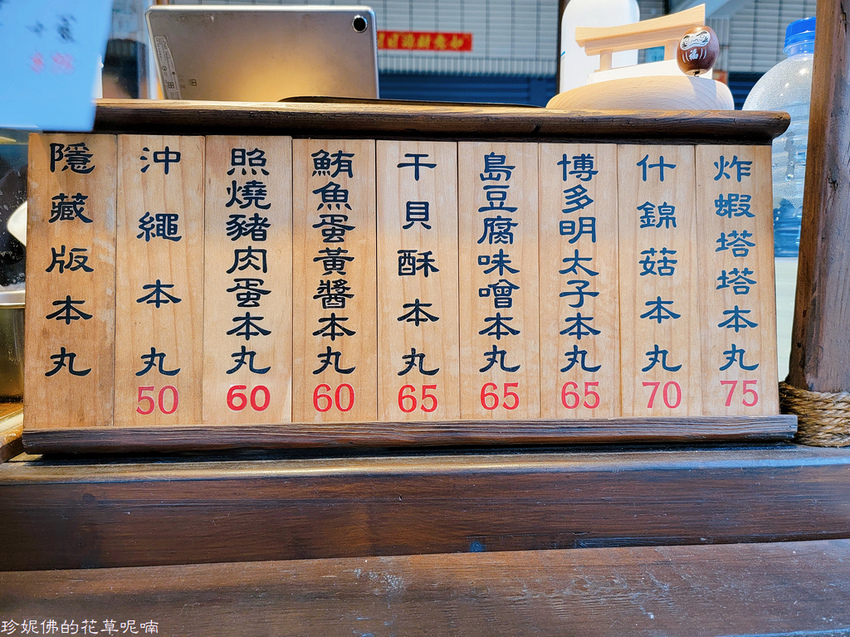 隱藏版本丸
沖繩本丸
50
照燒豬肉蛋本丸
60
鮪魚蛋黃醬本丸
60
干貝酥本丸
65
島豆腐味噌本丸
65
博多明太子本丸
65
什錦菇本丸
70
炸蝦塔塔本丸
75
福
珍妮佛的花草呢喃